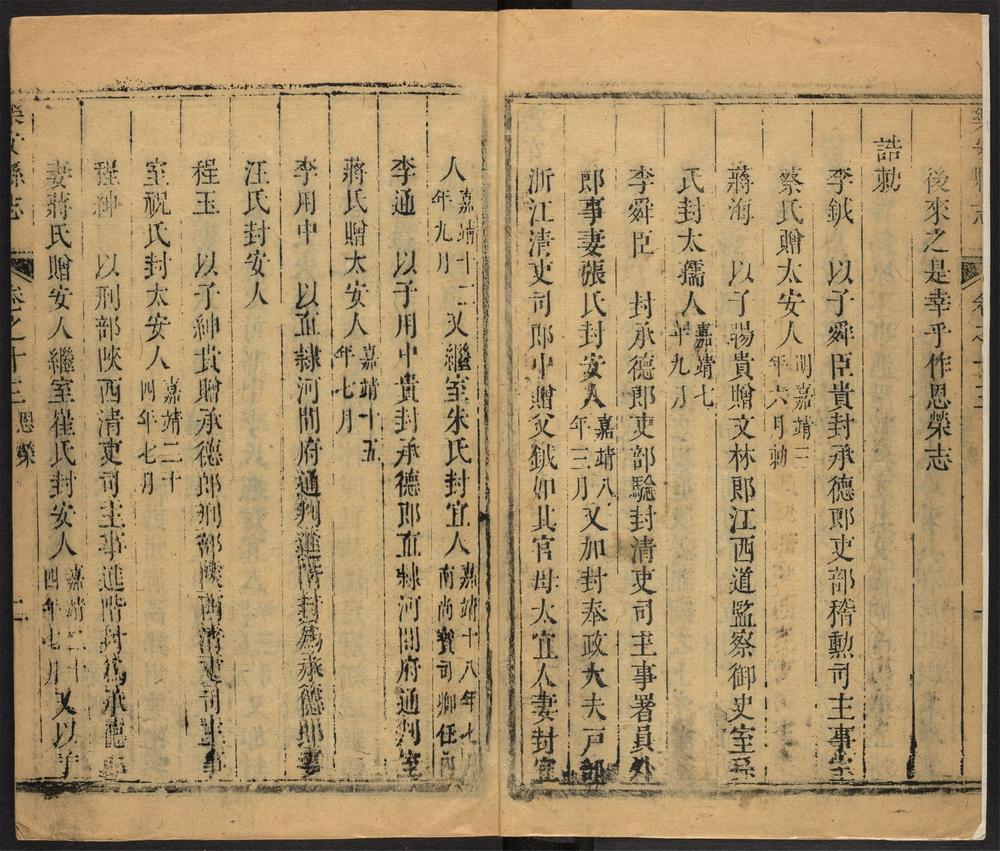 後來之是幸乎作恩榮志
誥勅
李鉞 以子舜臣貴封承德郎吏部稽勲司主事室
蔡氏贈太安人明嘉靖三年六月勅
蔣海 以子暘貴贈文林郎江西道監察御史室孫
氏封太孺人嘉靖七年九月
李舜臣 封承德郎吏部驗封清吏司主事署員外
郎事妻張氏封安人嘉靖八年三月又加封奉政大夫戶部
浙江清吏司郎中贈父鉞如其官母太宜人妻封宜
人嘉靖十二年九月又繼室朱氏封宜人嘉靖十八年七月南尚寶司卿任內
李通 以子用中貴封承德郎直隸河間府通判室
蔣氏贈太安人嘉靖十五年七月
李用中 以直隸河間府通判進階封為承德郎妻
汪氏封安人
程玉 以子紳貴贈承德郎刑部陜西清吏司主事
室祝氏封太安人嘉靖二十四年七月
程紳 以刑部陜西清吏司主事進階封為承德郎
妻蔣氏贈安人繼室崔氏封安人嘉靖二十四年七月又以子
樂安縣志 卷之十三 恩榮 二